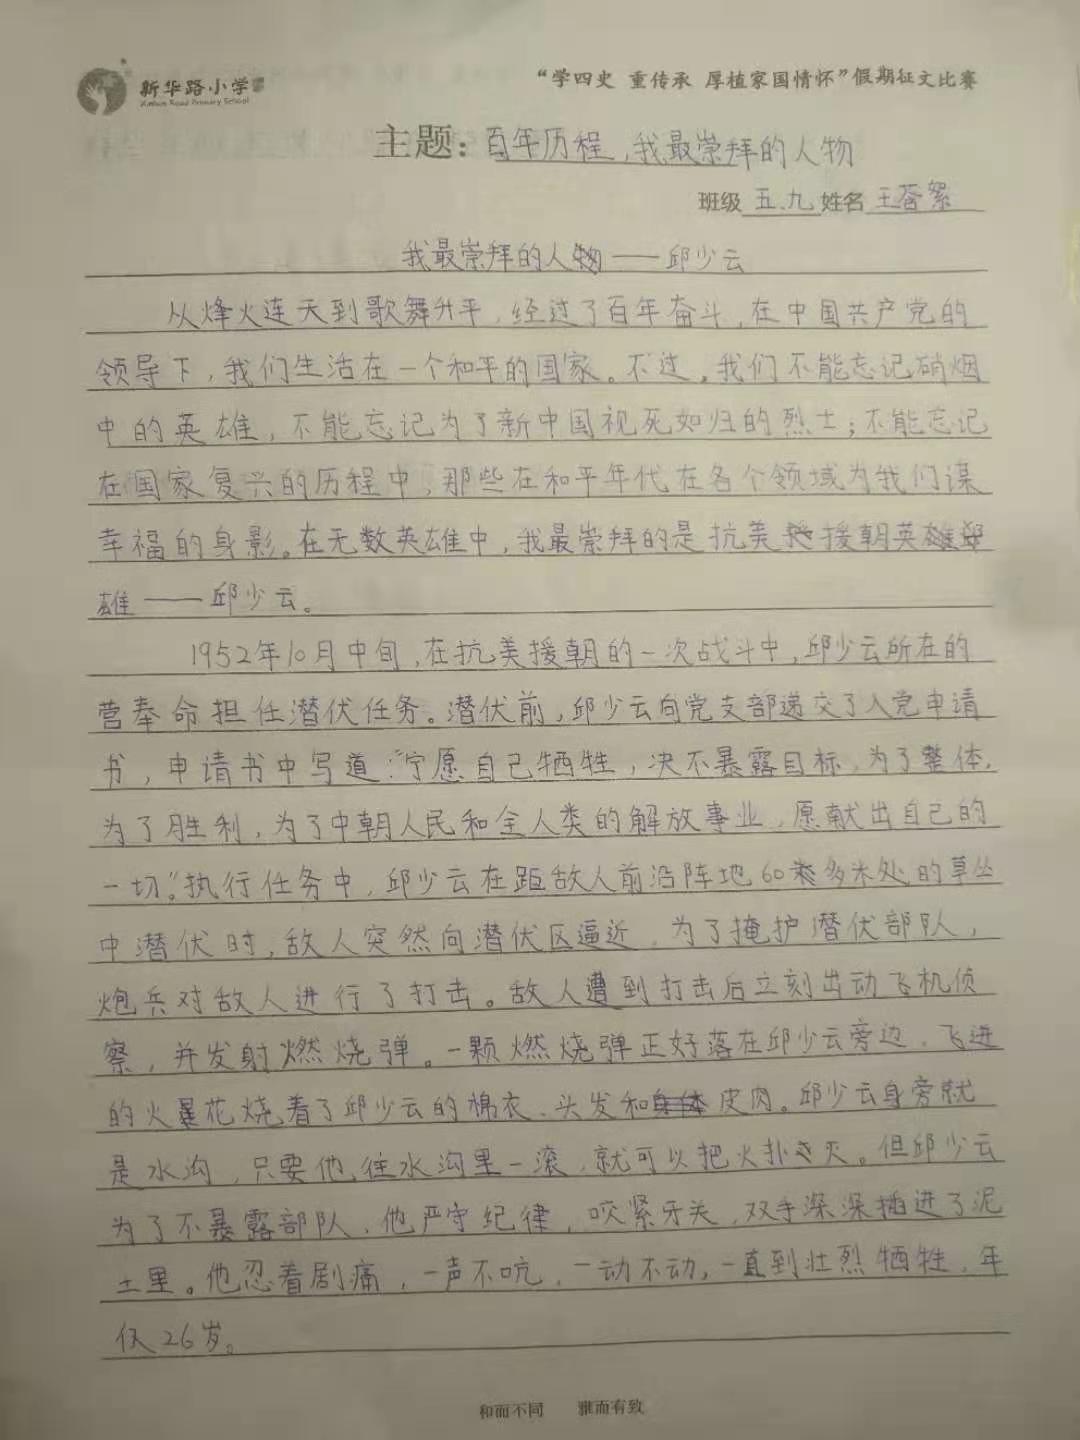 新华路小学
Xinhua Road Primary School
“学四史 重传承 厚植家国情怀”假期征文比赛
主题：百年历程，我最崇拜的人物
班级 五.九 姓名 王荟絮
我最崇拜的人物——邱少云
从烽火连天到歌舞升平，经过了百年奋斗，在中国共产党的
领导下，我们生活在一个和平的国家。不过，我们不能忘记硝烟
中的英雄，不能忘记为了新中国视死如归的烈士；不能忘记
在国家复兴的历程中，那些在和平年代在各个领域为我们谋
幸福的身影。在无数英雄中，我最崇拜的是抗美援朝英
雄——邱少云。
1952年10月中旬，在抗美援朝的一次战斗中，邱少云所在的
营奉命担任潜伏任务。潜伏前，邱少云向党支部递交了入党申请
书，申请书中写道：“宁愿自己牺牲，决不暴露目标，为了整体，
为了胜利，为了中朝人民和全人类的解放事业，愿献出自己的
一切。”执行任务中，邱少云在距敌人前沿阵地60多米处的草丛
中潜伏时，敌人突然向潜伏区逼近，为了掩护潜伏部队，
炮兵对敌人进行了打击。敌人遭到打击后立刻出动飞机侦
察，并发射燃烧弹。一颗燃烧弹正好落在邱少云旁边，飞进
的火花烧着了邱少云的棉衣、头发和皮肉。邱少云身旁就
是水沟，只要他往水沟里一滚，就可以把火扑灭。但邱少云
为了不暴露部队，他严守纪律，咬紧牙关，双手深深插进了泥
土里。他忍着剧痛，一声不吭，一动不动，一直到壮烈牺牲，年
仅26岁。
和而不同 雅而有致